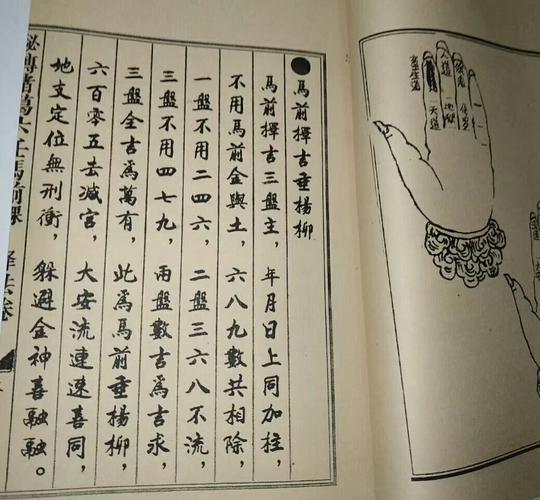 ●馬前擇吉垂楊柳
馬前擇吉三盤主，年月日上同加柱，
不用馬前金與土，六八九數共相除，
一盤不用二四六，二盤三六八不流，
三盤不用四七九，兩盤數吉為吉求，
三盤全吉為萬有，此為馬前垂楊柳，
六百零五去减宮，大安流連速喜同，
地支定位無刑衝，躲避金神喜融融。
秘傳諸葛六壬馬前課